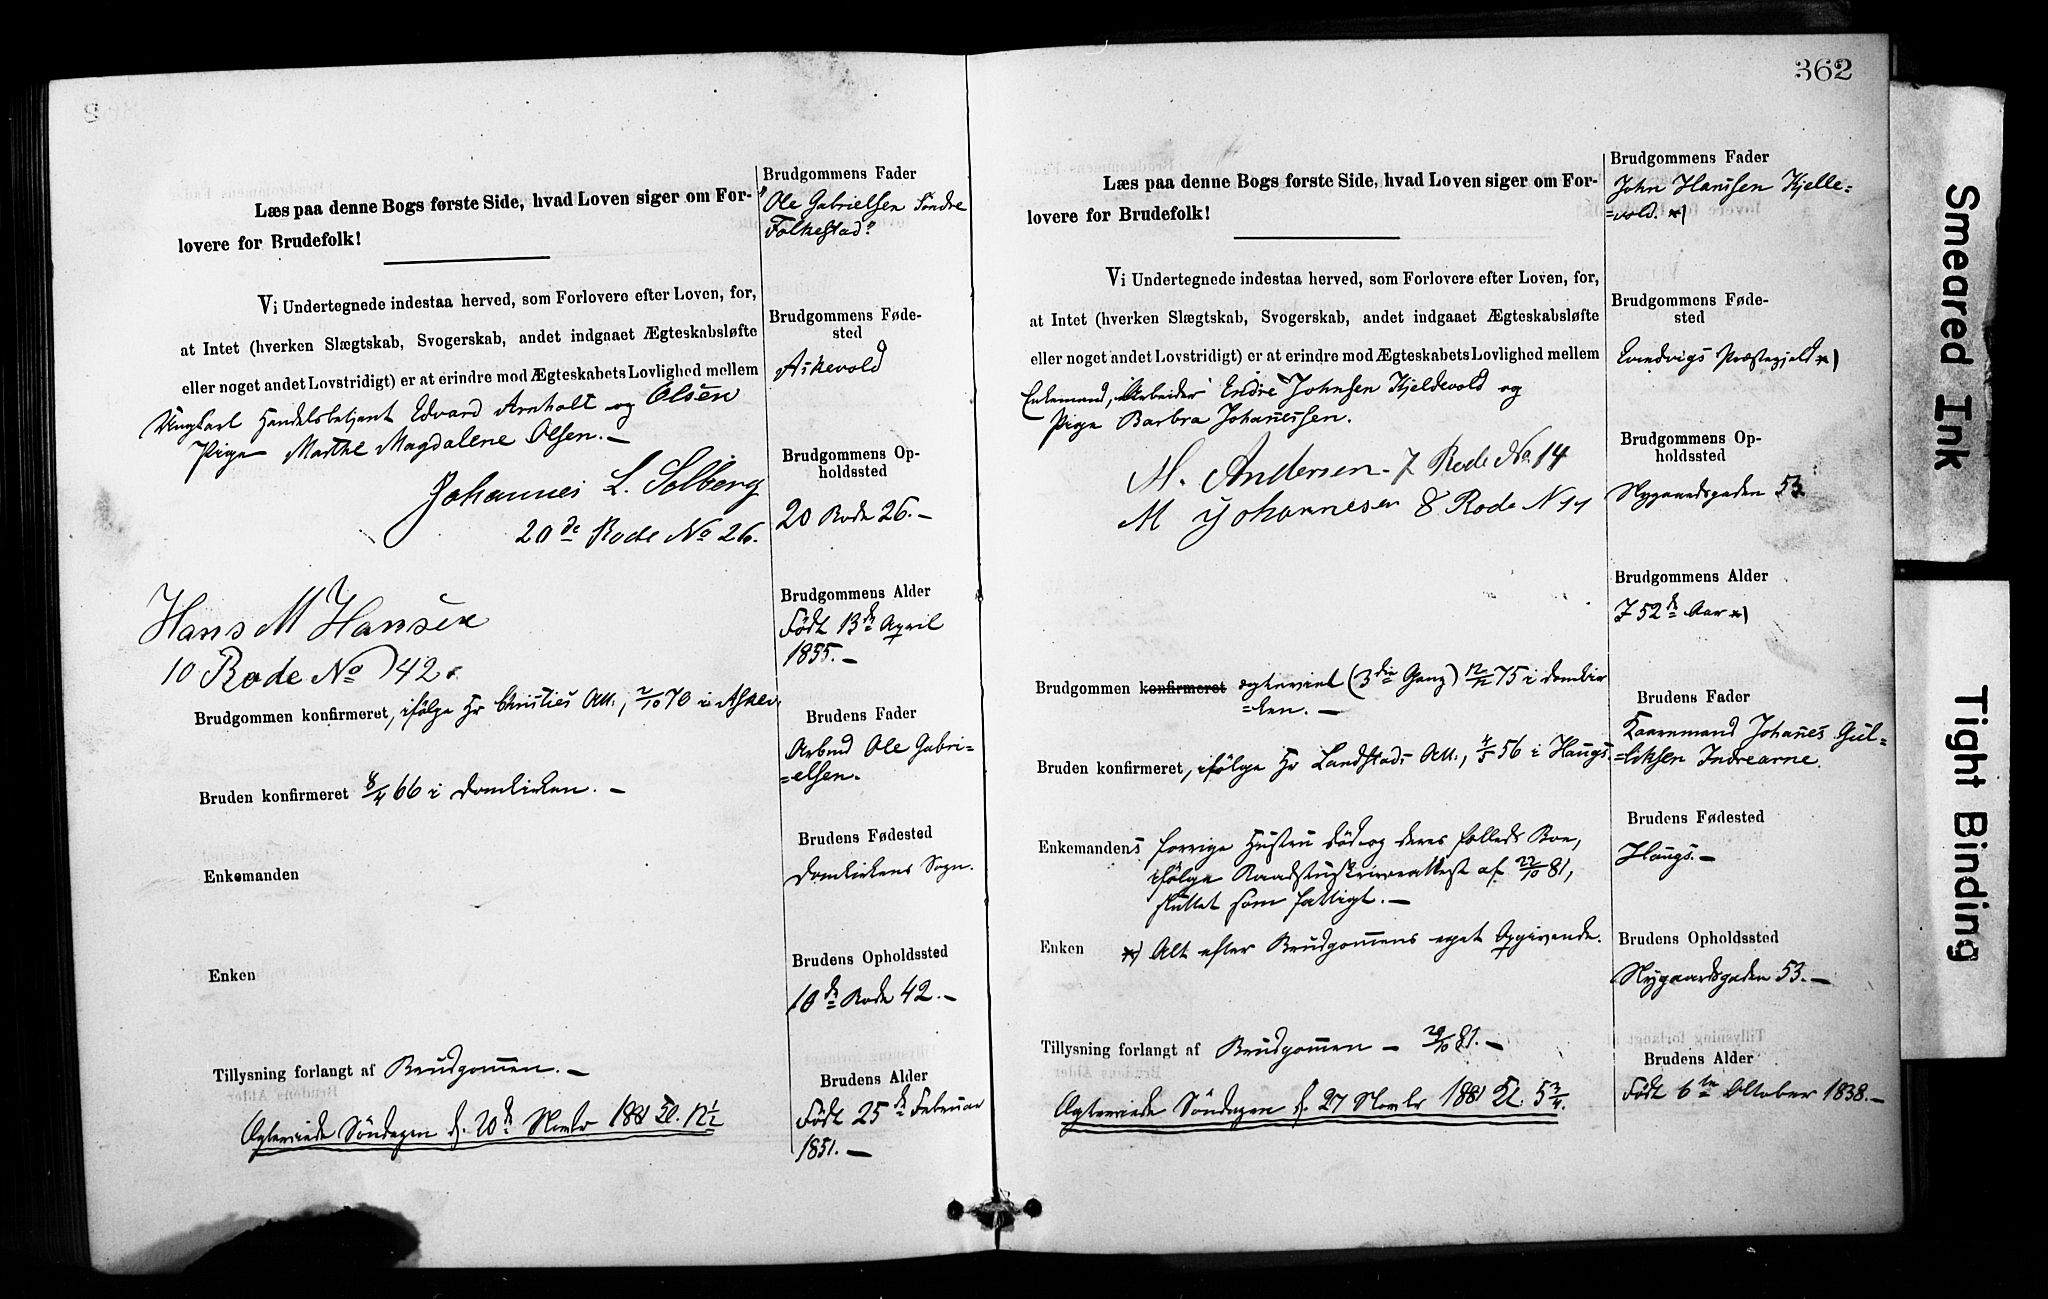 Læs paa denne Bogs første Side, hvad Loven siger om For-
lovere for Brudefolk!
Vi Undertegnede indestaa herved, som Forlovere efter Loven, for,
at Intet (hverken Slægtskab, Svogerskab, andet indgaaet Ægteskabsløfte
eller noget andet Lovstridigt) er at erindre mod Ægteskabets Lovlighed mellem
Ungkarl Handelsbetjent Edvard Arnholt Olsen og
Pige Marthe Magdalene Olsen.—
Johannes L. Solberg
20de Rode No 26.
Hans M Hansen
10 Rode No 42.
Brudgommen konfirmeret, ifølge Hr Christies Att., 2/10 70 i Askev.
Bruden konfirmeret 8/4 66 i Domkirken.—
Enkemanden
Enken
Tillysning forlangt af Brudgommen.—
Ægteviede Søndagen d. 20de Novbr 1881 Kl. 12 1/2
Brudgommens Fader
"Ole Gabrielsen Søndre
Folkestad"
Brudgommens Føde-
sted
Askevold
Brudgommens Op-
holdssted
20 Rode 26.—
Brudgommens Alder
Født 13de April
1855.—
Brudens Fader
Arbmd Ole Gabri=
=elsen.
Brudens Fødested
Domkirkens Sogn.
Brudens Opholdssted
10de Rode 42.—
Brudens Alder
Født 25de Februar
1851.—
362
Læs paa denne Bogs første Side, hvad Loven siger om For-
lovere for Brudefolk!
Vi Undertegnede indestaa herved, som Forlovere efter Loven, for,
at Intet (hverken Slægtskab, Svogerskab, andet indgaaet Ægteskabsløfte
eller noget andet Lovstridigt) er at erindre mod Ægteskabets Lovlighed mellem
Enkemand, Arbeider Endre Johnsen Kjeldevold og
Pige Barbra Johannessen.
M. Andersen - 7 Rode No. 14
M Johannesen 8 Rode N 11
Brudgommen konfirmeret ægteviet (3die Gang) 12/12 75 i Domkir
=ken.—
Bruden konfirmeret, ifølge Hr Landstads Att., 4/5 56 i Haugs.
Enkemandens forrige Hustru død og deres fælleds Boe,
ifølge Raadstuskriverattest af 22/10 81,
sluttet som fattigt.—
Enken *) Alt efter Brudgommens eget Opgivende.
Tillysning forlangt af Brudgommen — 29/10 81.—
Ægteviede Søndagen d. 27 Novbr 1881 Kl. 5 3/4.
Brudgommens Fader
John Hanssen Kjelle=
=vold. *)
Brudgommens Føde-
sted
Evindvigs Præstegjeld *)
Brudgommens Op-
holdssted
Nygaardsgaden 53
Brudgommens Alder
I 52de Aar *)
Brudens Fader
Kaarmand Johanes Gul=
=liksen Indrearne.
Brudens Fødested
Haugs.—
Brudens Opholdssted
Nygaardsgaden 53.—
Brudens Alder
Født 6te Oktober 1838.—
Smeared Ink
Tight Binding